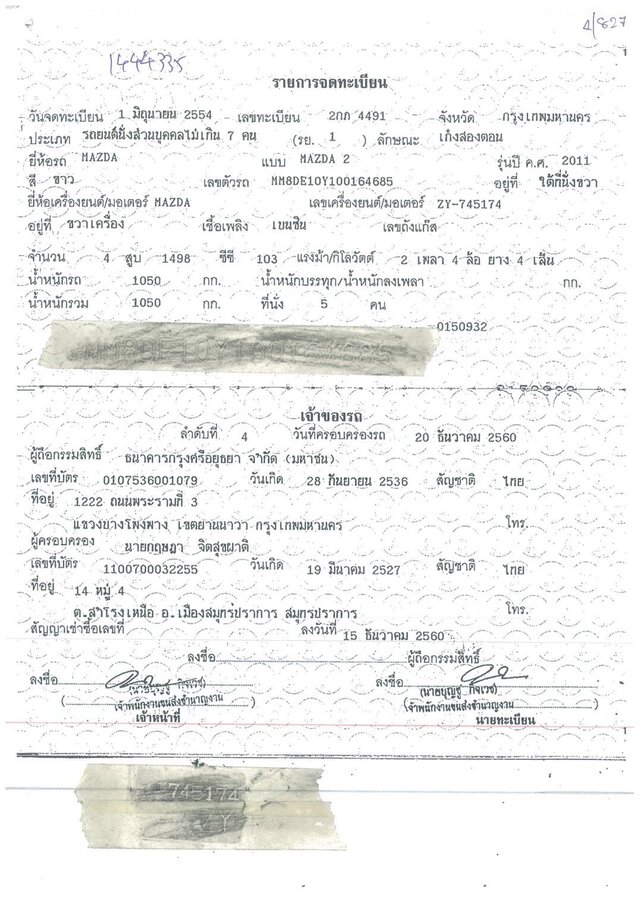 4/827
1444335
1
รายการจดทะเบียน
วันจดทะเบียน 1 มิถุนายน 2554 เลขทะเบียน 2กภ 4491 จังหวัด กรุงเทพมหานคร
ประเภท รถยนต์นั่งส่วนบุคคลไม่เกิน 7 คน (รย. 1 ) ลักษณะ เก๋งสองตอน
ยี่ห้อรถ MAZDA แบบ MAZDA 2 รุ่นปี ค.ศ. 2011
สี ขาว เลขตัวรถ MM8DE10Y100164685 อยู่ที่ ใต้ที่นั่งขวา
ยี่ห้อเครื่องยนต์/มอเตอร์ MAZDA เลขเครื่องยนต์/มอเตอร์ ZY-745174
อยู่ที่ ขวาเครื่อง เชื้อเพลิง เบนซิน เลขถังแก๊ส
จำนวน 4 สูบ 1498 ซีซี 103 แรงม้า/กิโลวัตต์ 2 เพลา 4 ล้อ ยาง 4 เส้น
น้ำหนักรถ 1050 กก. น้ำหนักบรรทุก/น้ำหนักลงเพลา กก.
น้ำหนักรวม 1050 กก. ที่นั่ง 5 คน
0150932
MM8DE10Y100164685
เจ้าของรถ
ลำดับที่ 4 วันที่ครอบครองรถ 20 ธันวาคม 2560
ผู้ถือกรรมสิทธิ์ ธนาคารกรุงศรีอยุธยา จำกัด (มหาชน)
เลขที่บัตร 0107536001079 วันเกิด 28 กันยายน 2536 สัญชาติ ไทย
ที่อยู่ 1222 ถนนพระรามที่ 3
แขวงบางโพงพาง เขตยานนาวา กรุงเทพมหานคร โทร.
ผู้ครอบครอง นายกฤษฎา จิตสุขผาติ
เลขที่บัตร 1100700032255 วันเกิด 19 มีนาคม 2527 สัญชาติ ไทย
ที่อยู่ 14 หมู่ 4
ต.สำโรงเหนือ อ.เมืองสมุทรปราการ สมุทรปราการ โทร.
สัญญาเช่าซื้อเลขที่ ลงวันที่ 15 ธันวาคม 2560
ลงชื่อ ผู้ถือกรรมสิทธิ์
ลงชื่อ ลงชื่อ
(นายบุญชู กิจเวช) (นายบุญชู กิจเวช)
(เจ้าพนักงานขนส่งชำนาญงาน) (เจ้าพนักงานขนส่งชำนาญงาน)
เจ้าหน้าที่ นายทะเบียน
1
745174
ZY